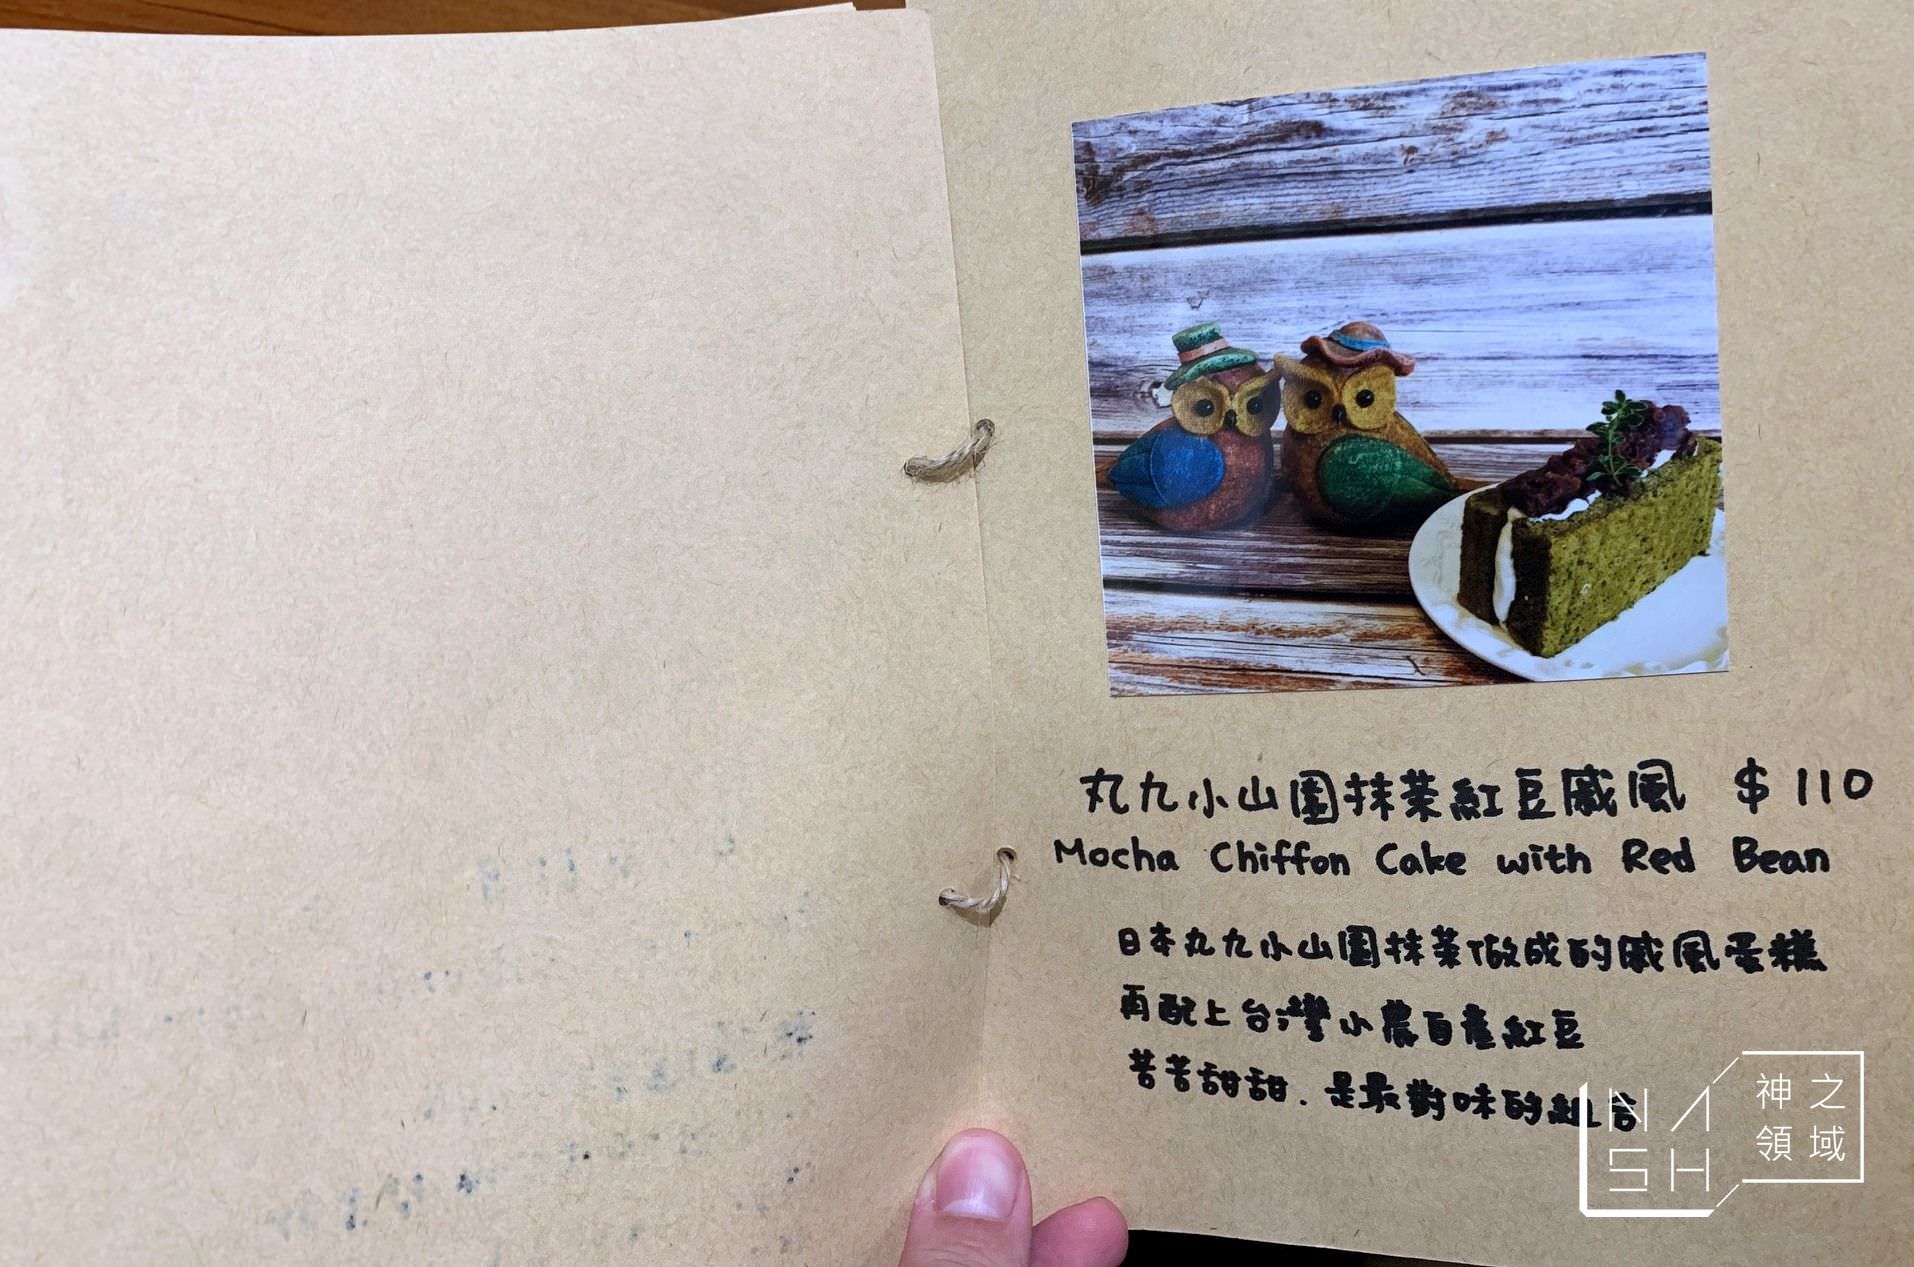 丸九小山園抹茶紅豆戚風 $110
Mocha Chiffon Cake with Red Bean
日本丸九小山園抹茶做成的戚風蛋糕
再配上台灣小農自產紅豆
苦苦甜甜.是最對味的組合
NASH
神之領域